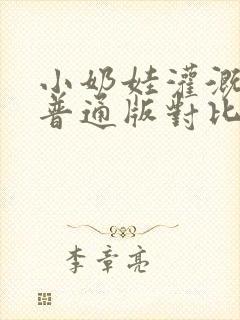 小奶娃灌溉
普通版對比
李章亮